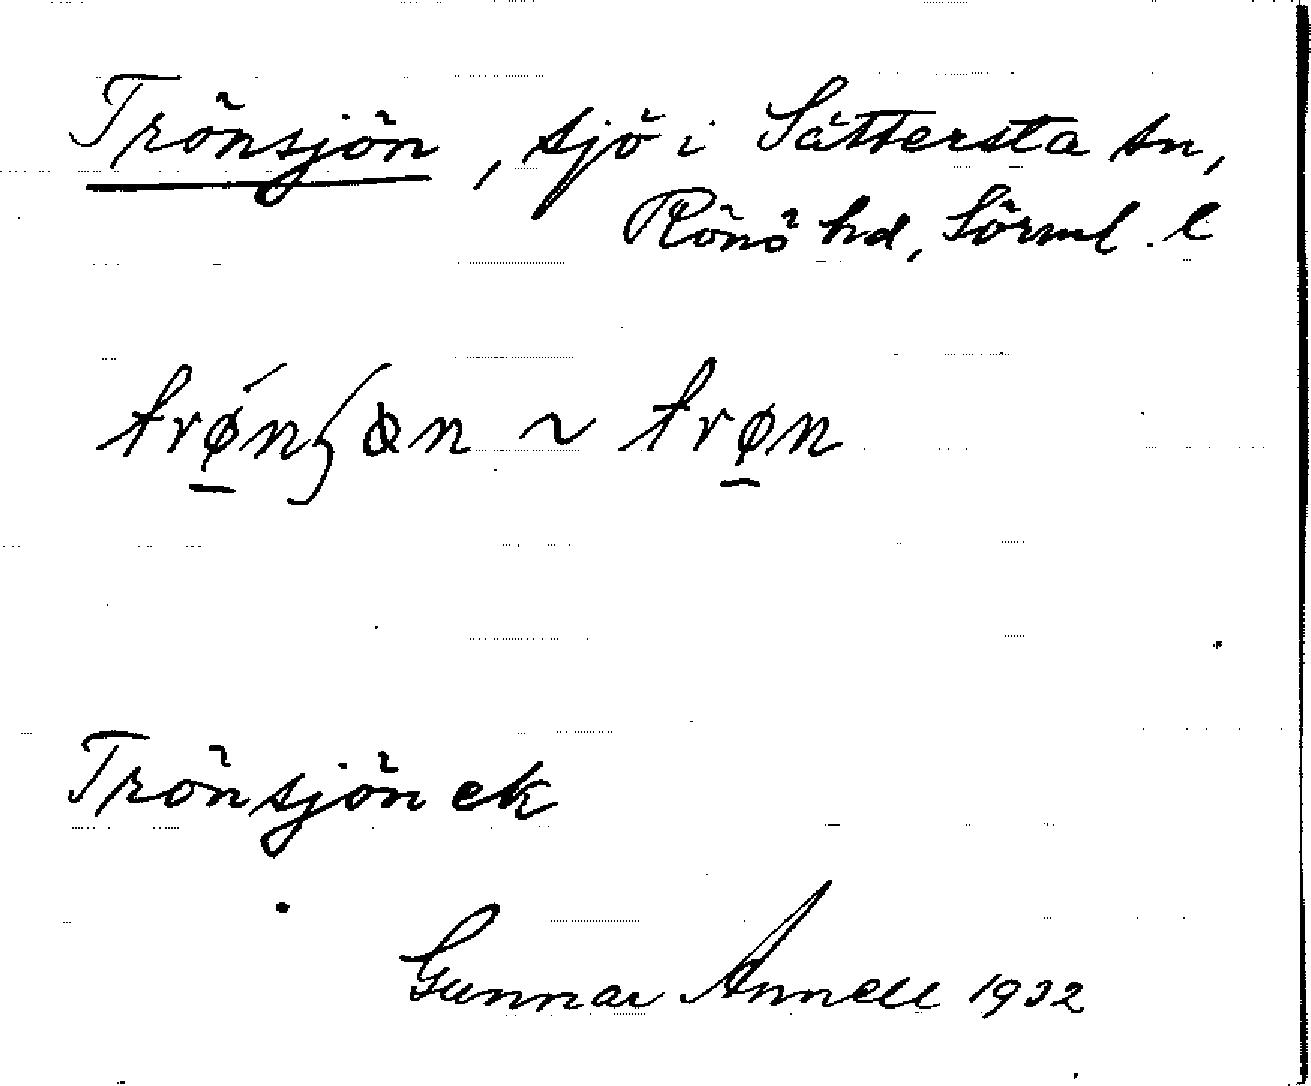 Trönsjön, sjö i Sättersta sn,
Rönö hd, Sörml. l
trǿ̱nʃøn ~ trø̱n
Trönsjön ek
Gunnar Annell 1932